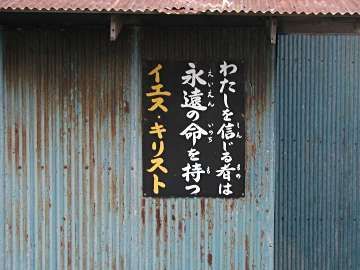 わたしを信じる者は
永遠の命を持つ
イエス・キリスト